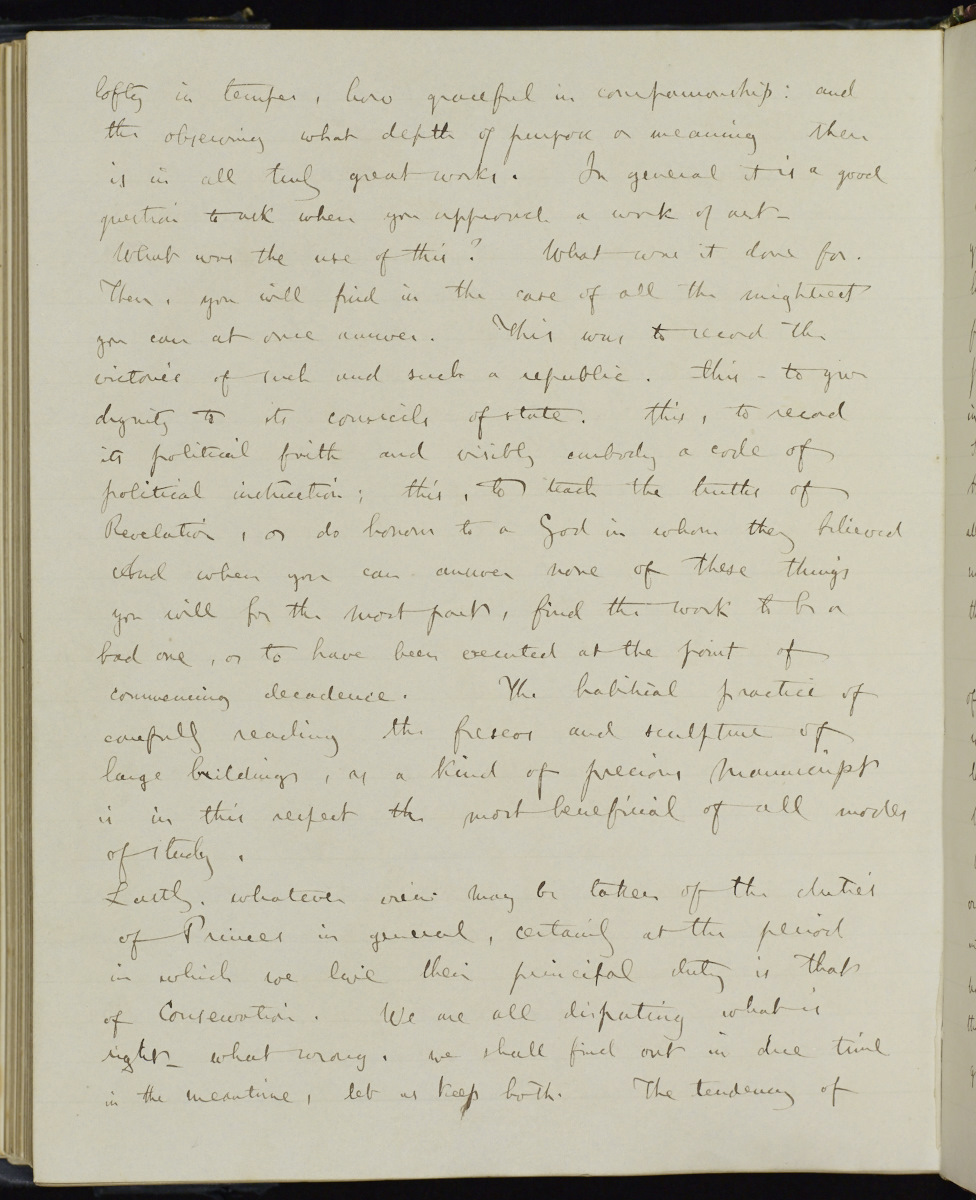 lofty in temper, how graceful in companionship: and
the observing what depth of purpose or meaning there
is in all truly great works. In general it is a good
question to ask when you approach a work of art –
What was the use of this? What was it done for.
Then, you will find in the case of all the mightiest
you can at once answer. This was to record the
victories of such and such a republic. this – to give
dignity to its councils of state. this, to record
its political faith and visibly embody a code of
political instruction; this, to teach the truths of
Revelation, or do honour to a God in whom they believed
And when you can answer none of these things
you will for the most part, find the work to be a
bad one, or to have been executed at the point of
commencing decadence. The habitual practice of
carefully reading the frescos and sculpture of
large buildings, as a kind of precious manuscript
is in this respect the most beneficial of all modes
of study.
Lastly. whatever view may be taken of the duties
of Princes in general, certainly at the period
in which we live their principal duty is that
of Conservation. We are all disputing what is
right – what wrong. we shall find out in due time
in the meantime, let us keep both. The tendency of